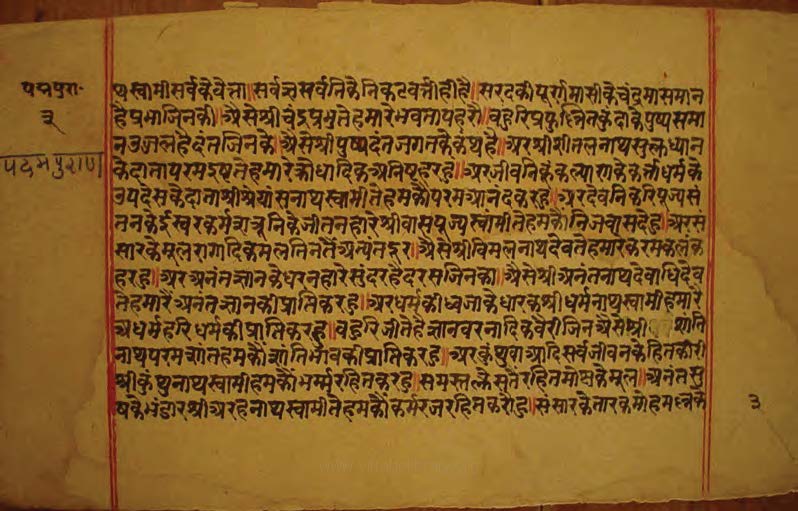 पद्मपुरा॰
३
पदमपुराण
स्वामी सर्वकेवेत्ता॥ सर्वज्ञसर्वनिकैनिकटवर्त्तीहीहै॥ सरदकीपूर्णमासीकेचंद्रमासमान
हैप्रभाजिनकी॥ अैसेश्रीचंद्रप्रभुतेहमारेभवतापहरौ॥ बहुरिप्रफुल्लितकुंदाकेपुष्पसमा
नउज्जलहैदंतजिनके॥ अैसेश्रीपुष्पदंतजगतकेकंथहै॥ अरश्रीशीतलनाथसुक्लध्यान
केदातापरमइष्टतेहमारेक्रोधादिकअनिष्टहरहु॥ अरजीवनिकूंकल्याणकेकर्त्ताधर्मके
उपदेसकेदाताश्रीश्रेयांसनाथस्वामीतेहमकौपरमआनंदकरहु॥ अरदेवनिकरिपूज्यसं
तनकेईस्वरकर्मशत्रूनिकेजीतनहारेश्रीवासपूज्यस्वामीतेहमकौनिजवासदेहु॥ अरसं
सारकेमूलरागादिकमलतिनतैंअत्यंतदूर॥ अैसेश्रीविमलनाथदेवतेहमारेकरमकलंक
हरहु॥ अरअनंतज्ञानकेधरनहारेसुंदरहैदरसजिनका॥ अैसेश्रीअनंतनाथदेवाधिदेव
तेहमारैअनंतज्ञानकीप्राप्तिकरहु॥ अरधर्मकीध्वजाकेधारकश्रीधर्मनाथस्वामीहमारे
अधर्महरिधर्मकीप्राप्तिकरहु॥ बहुरिजीतेहैज्ञानवरनादिकवैरीजिनअैसेश्री शांति
नाथपरमशांतहमकौंशांतिभावकीप्राप्तिकरहु॥ अरकुंथुवाआदिसर्वजीवनकेहितकारी
श्रीकुंथुनाथस्वामीहमकौंभर्म्मरहितकरहु॥ समस्तक्लेसतैंरहितमोक्षकेमूल॥ अनंतसु
षकेभंडारश्रीअरहनाथस्वामीतेहमकौंकर्मरजरहितकरौहु॥ संसारकेतारकमोहमल्लके
३